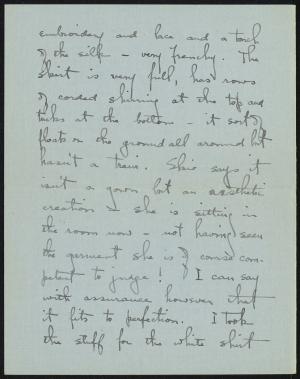 embroidery and lace and a touch
of the silk - very Frenchy. The
skirt is very full, has rows
of corded shirring at the top and
tucks at the bottom - it sort of
floats on the ground all around but
hasn't a train. Skio says it
isn't a gown but an aesthetic
creation - she is sitting in
the room now - not having seen
the garment she is of course com-
petent to judge! I can say
with assurance however that
it fits to perfection. I took
the stuff for the white shirt